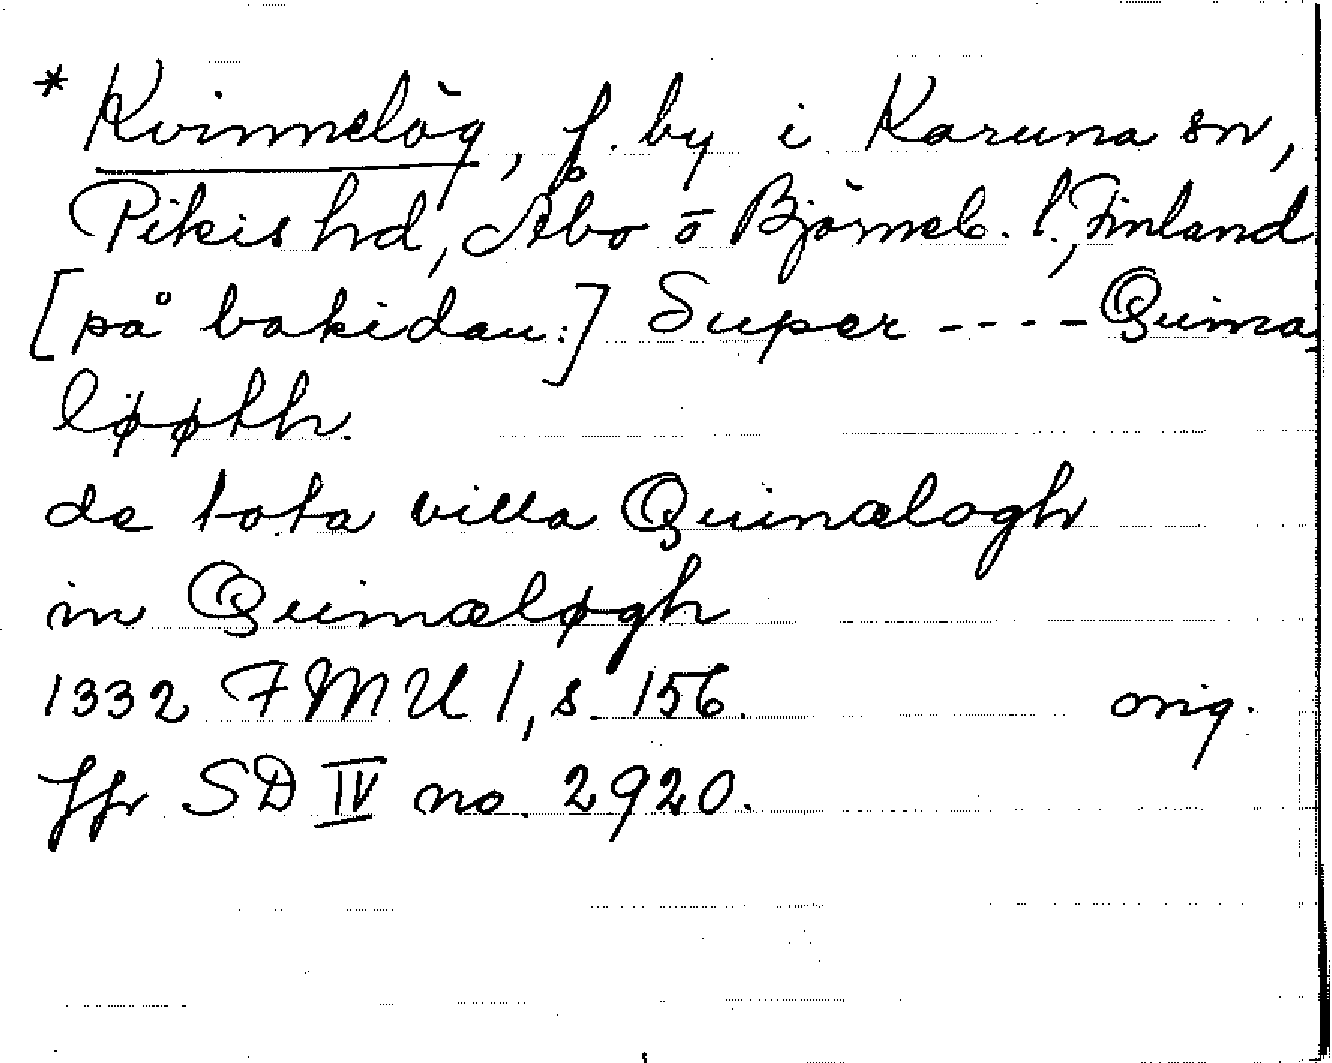 * Kvinnelög, f. by i Karuna sn,
Pikis hd, Åbo o Björneb. l., Finland
[på baksidan:] Super ---- Quina-
løøth.
de tota villa Quinælogh
in Quinæløgh
1332 FMU 1, s. 156. orig.
Jfr SD IV no. 2920.